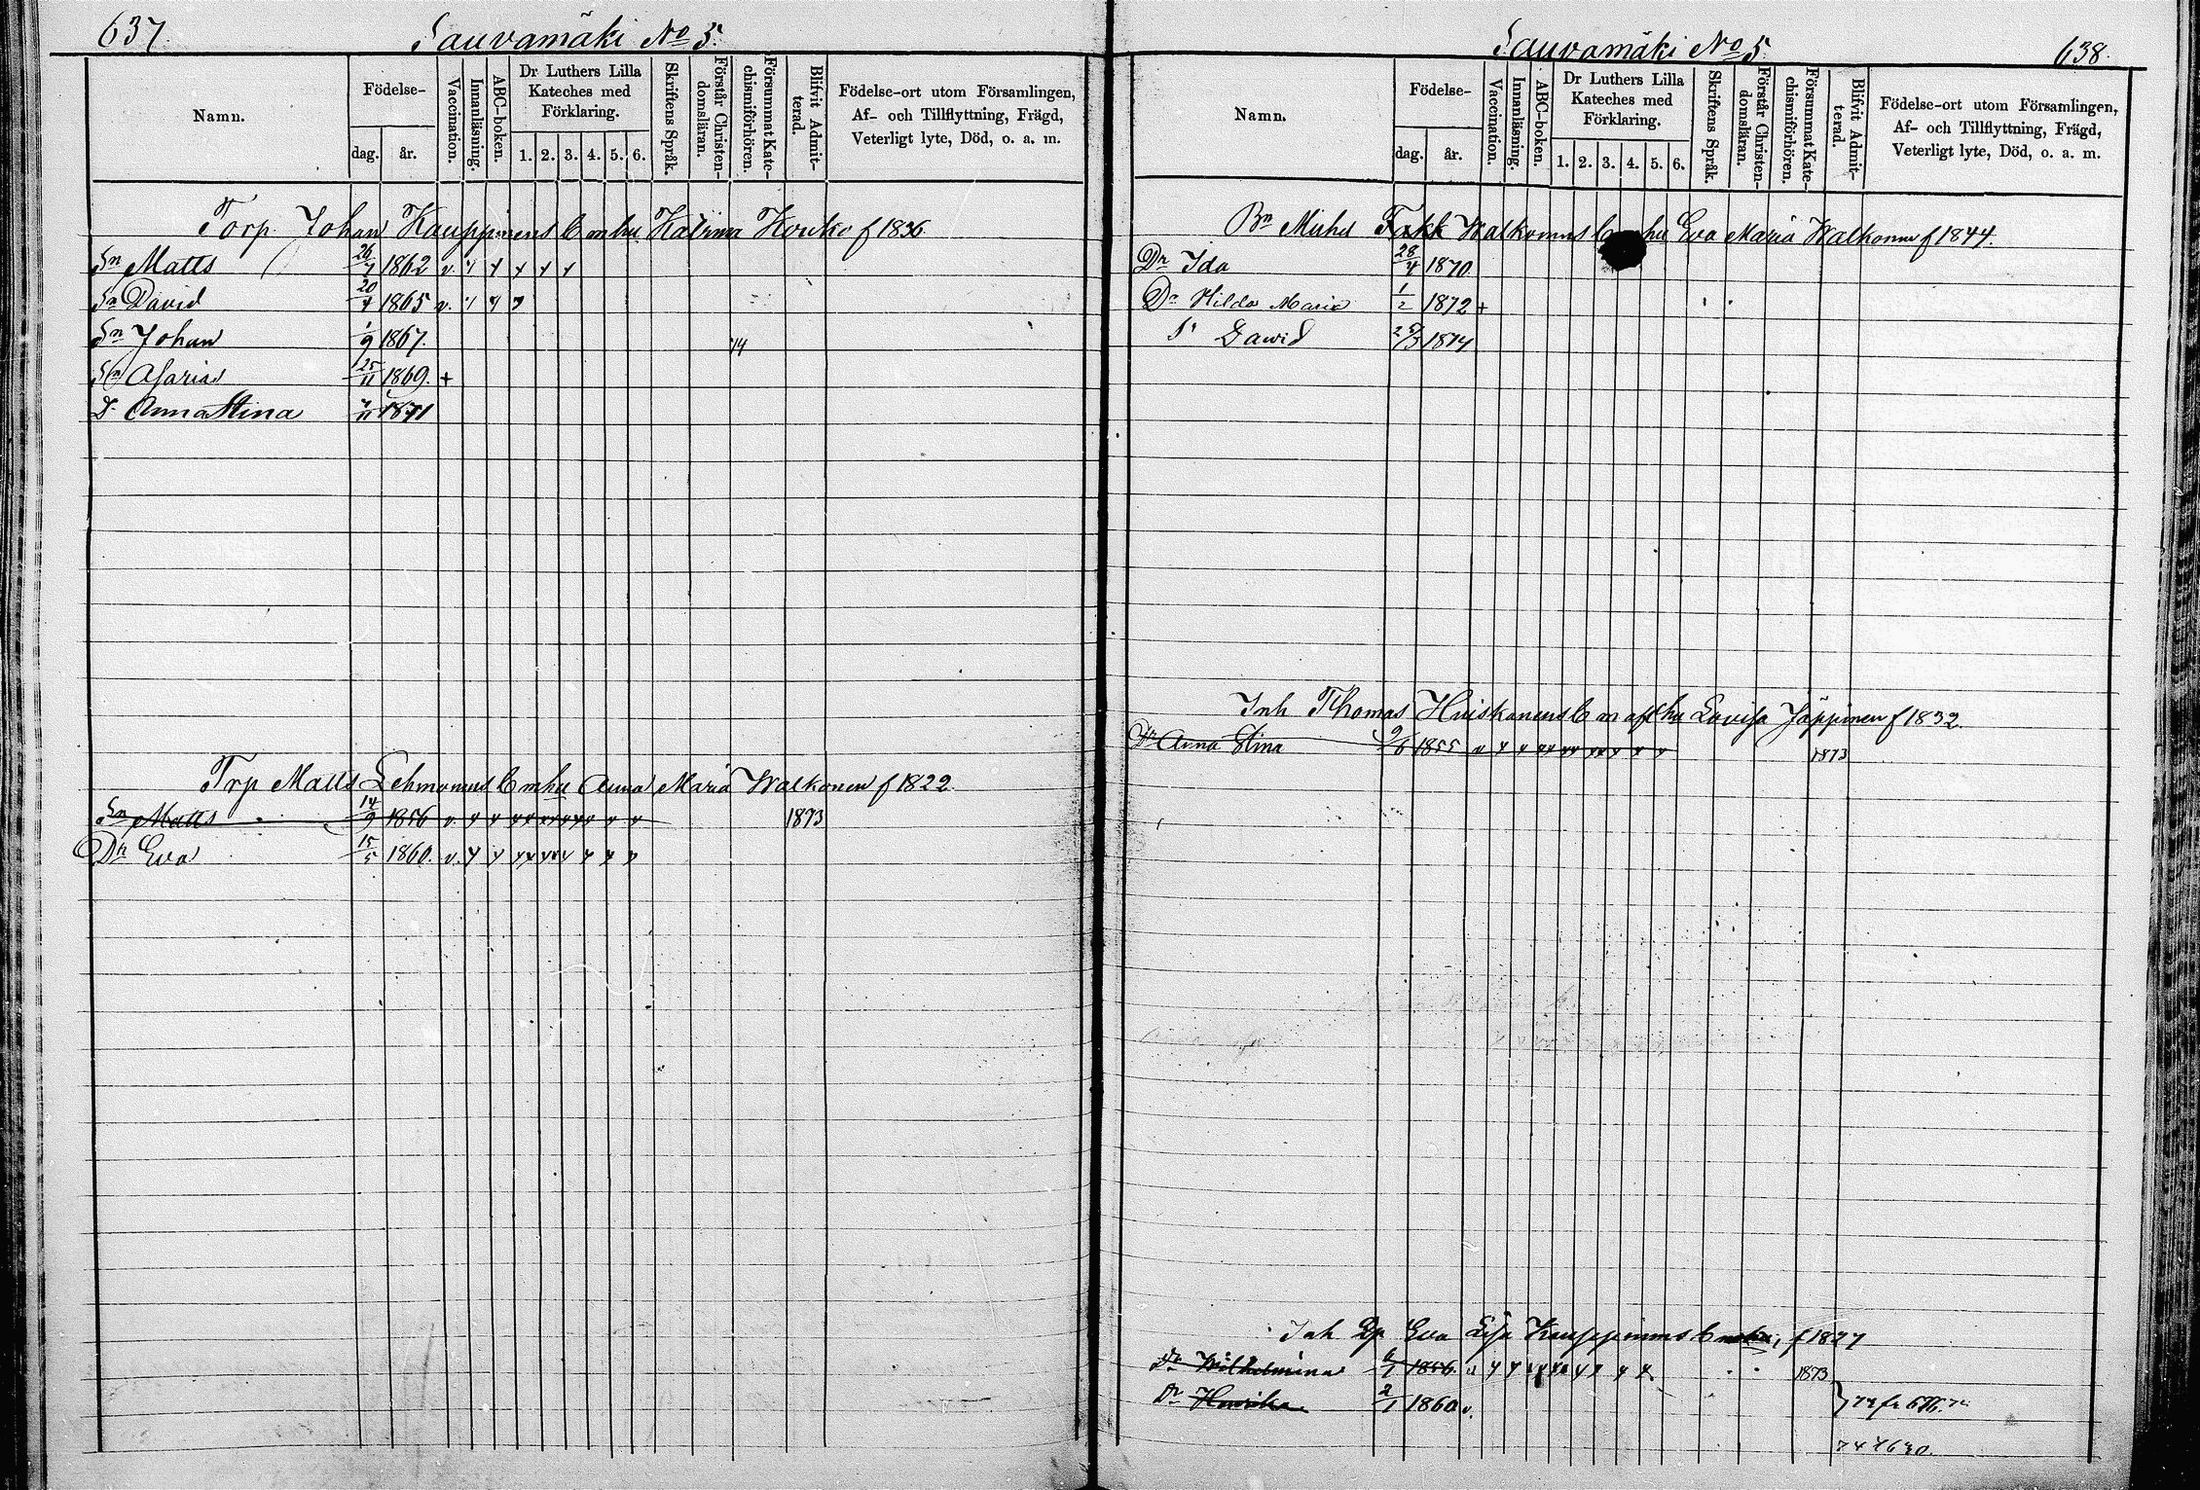 637.
Sauvamäki No 5.
Namn.
Födelse-
dag.
år.
Vaccination.
Innanläsning.
ABC-boken.
Dr Luthers Lilla
Kateches med
Förklaring.
1. 2. 3. 4. 5. 6.
Skriftens Språk.
Förstår Christen-
domsläran.
Försummat Kate-
chismiförhören.
Blifvit Admit-
terad.
Födelse-ort utom Församlingen,
Af- och Tillflyttning, Frägd,
Veterligt lyte, Död, o. a. m.
Torp. Johan Kauppinens b m hu Katrina Kouko f 1836
Sn Matts 26/7 1862 v.
Sn David 20/4 1865 v.
Sn Johan 1/9 1867.
Sn Asarias 25/11 1869. +
Dr Anna Stina /11 1871
Trp Matts Lehmonens b m hu Anna Maria Walkonen f 1822.
Sn Matts 14/9 1856 v 1873
Dr Eva 15/5 1860. v.
Sauvamäki No 5
638.
Namn.
Födelse-
dag.
år.
Vaccination.
Innanläsning.
ABC-boken.
Dr Luthers Lilla
Kateches med
Förklaring.
1. 2. 3. 4. 5. 6.
Skriftens Språk.
Förstår Christen-
domsläran.
Försummat Kate-
chismiförhören.
Blifvit Admit-
terad.
Födelse-ort utom Församlingen,
Af- och Tillflyttning, Frägd,
Veterligt lyte, Död, o. a. m.
Bn Michel Walkonens hu Eva Maria Walkonen f 1844.
Dr Ida 28/4 1870.
Dr Hilda Maria 1/2 1872 +
Sn Dawid 25/3 1874
Inh Thomas Huiskonens b m afl hu Lovisa Jäppinen f 1832.
Dr Anna Stina 9/6 1855 v 1873
Inh Eva Lisa Kauppinens b f 1827
Dr Wilhelmina 6/1 1856. v 1873
Dr Henrika 2/1 1860 v.